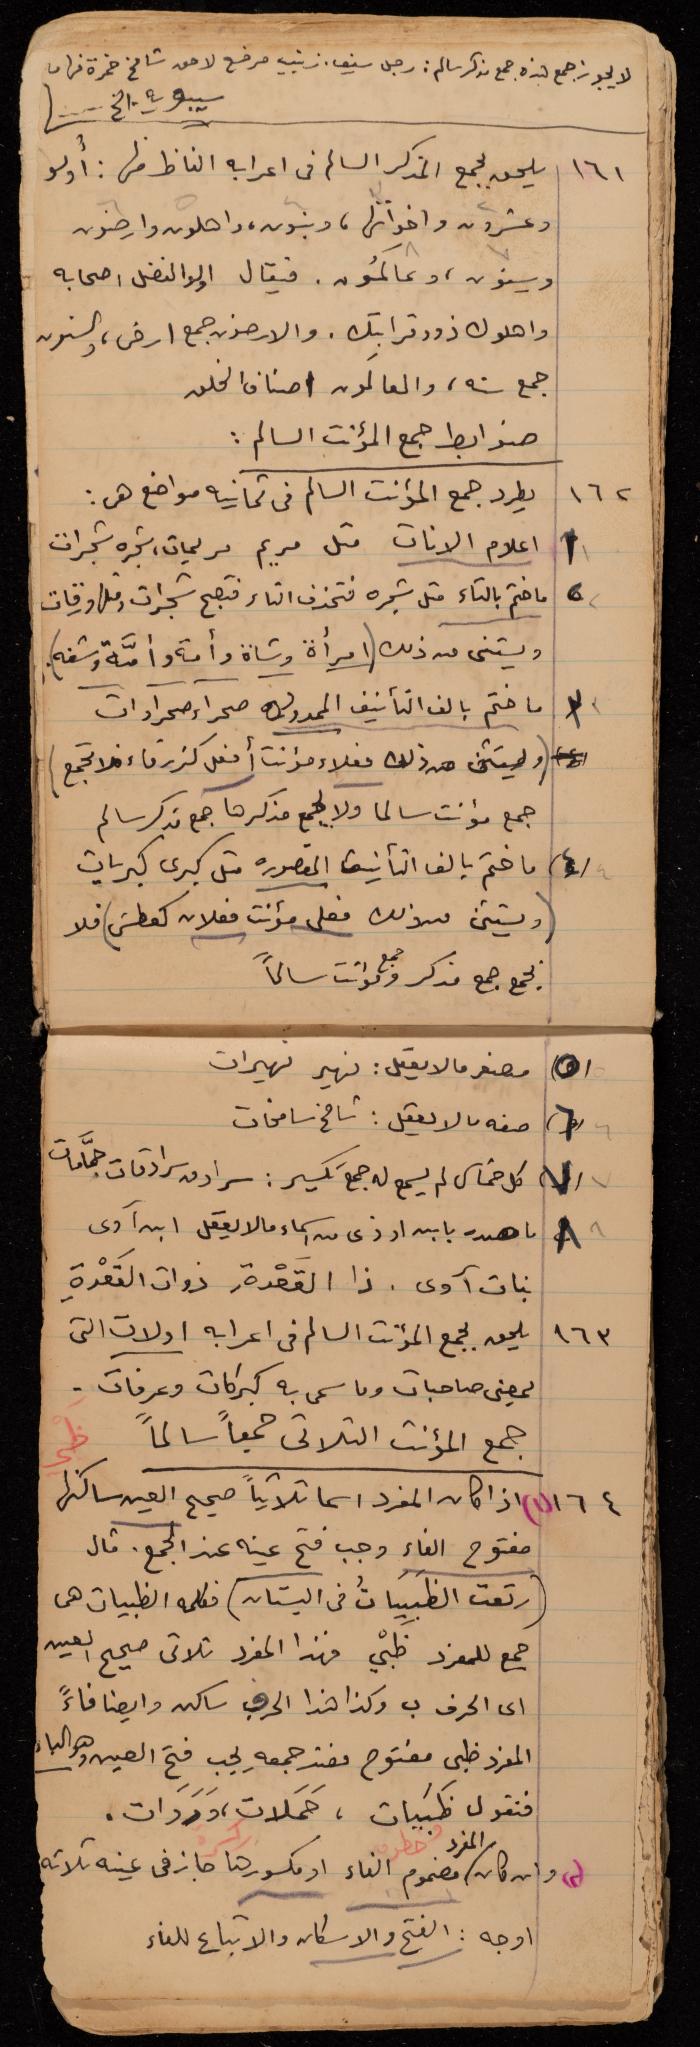 لا يجوز جمع هذه جمع مذكر سالم: رجل سيف. زينب مرضع لاحق شامخ حمزة
سيبويه الخ ...
١٦١ يلحق بجمع المذكر السالم في اعرابه الفاظ منها: أولو
وعشرون واخواتها، وبنون، واهلون وارضون
وسنون، وعالمون. فيقال اولو الفضل اصحابه
واهلوك ذوو قرابتك. والارضون جمع ارض، والسنون
جمع سنه، والعالمون اصناف الخلق
ضوابط جمع المؤنث السالم:
١٦٢ يطرد جمع المؤنث السالم في ثمانيه مواضع هي:
١ اعلام الاناث مثل مريم مريمات، شجره شجرات
٢ ما ختم بالتاء مثل شجره فتحذف التاء فتصبح شجرات ومثلها ورقات
ويستثنى من ذلك (امرأة وشاة وأمة وأمَّة وشفه).
٣ ما ختم بالف التأنيث الممدوده صحراء صحراوات
(ويستثنى من ذلك فعلاء مؤنث أفعل كزرقاء فلا تجمع)
جمع مؤنث سالما ولا يجمع مذكرها جمع مذكر سالم
٤) ما ختم بالف التأنيث المقصوره مثل كبرى كبريات
(ويستثنى من ذلك فعلى مؤنث فعلان كعطشى) فلا
تجمع جمع مذكر وجمع مؤنث سالماً
٥) مصغر ما لا يعقل: نهير نهيرات
٦) صفه ما لا يعقل: شامخ شامخات
٧) كل خماسي لم يسمع له جمع تكسير: سرادق سرادقات حمَّامات
٨ ما صدر بابن او ذي من اسماء ما لا يعقل ابن آوى
بنات آوى. ذا القَعْدة ذوات القَعْدةِ
١٦٣ يلحق بجمع المؤنث السالم في اعرابه اولات التي
بمعنى صاحبات وما سمي به كبركات وعرفات -
جمع المؤنث الثلاثي جمعاً سالماً
١٦٤ (١) اذا كان المفرد اسما ثلاثياً صحيح العين ساكنها
مفتوح الفاء وجب فتح عينه عند الجمع. مثال
(رتعت الظَبَيَاتُ في البستان) فكلمه الظبيات هي
جمع للمفرد ظَبْيٌ فهذا المفرد ثلاثي صحيح العين
اى الحرف ب وكذا هذا الحرف ساكن وايضا فاءً
المفرد ظبي مفتوح فعند جمعه يجب فتح العين وهو الباء
فنقول ظَبَيات، حَمَلات، وَرَدَات.
(٢) وان كان المفرد مضموم الفاء او مكسورها جاز في عينه ثلاثه
اوجه: الفتح والاسكان والاتباع للفاء